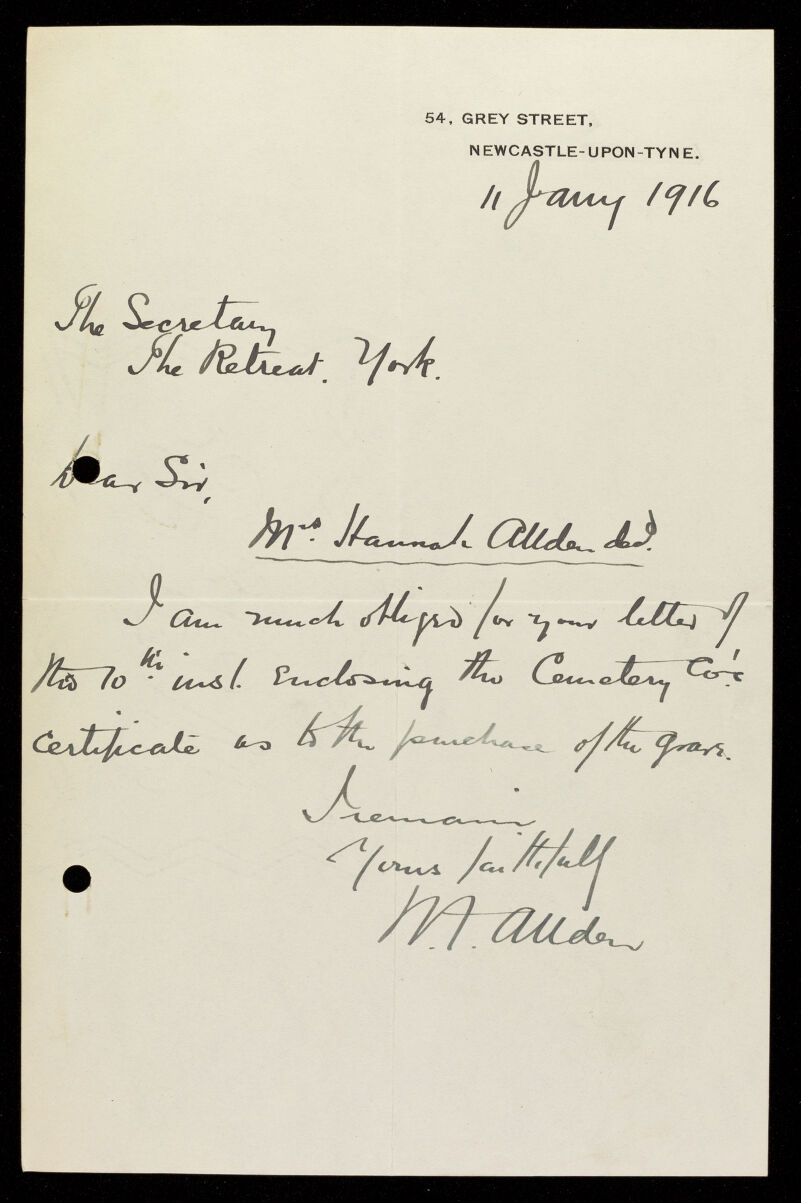 54, GREY STREET,
NEWCASTLE-UPON-TYNE.
11 Jany 1916
The Secretary
The Retreat. York.
Dear Sir,
Mrs. Hannah Allden decd.
I am much obliged for your letter of
the 10th. inst. enclosing the Cemetery Co's.
certificate as to the purchase of the grave.
I remain
Yours faithfully
W. A. Allden